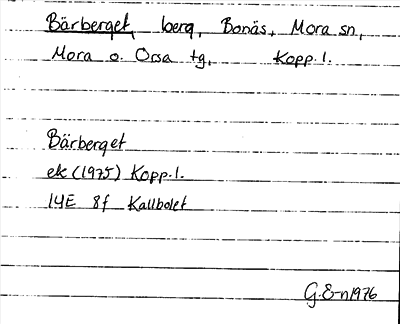 Bärberget, berg, Bonäs, Mora sn,
Mora o. Orsa tg, Kopp. l.
Bärberget
ek (1975) Kopp. l.
14E 8f Kallbolet
G.E-n 1976